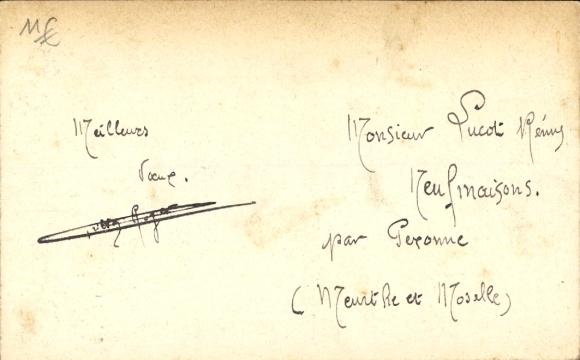 Meilleurs
Vœux.
Monsieur Lucot Rémy
Neufmaisons.
par Pexonne
(Meurthe et Moselle)